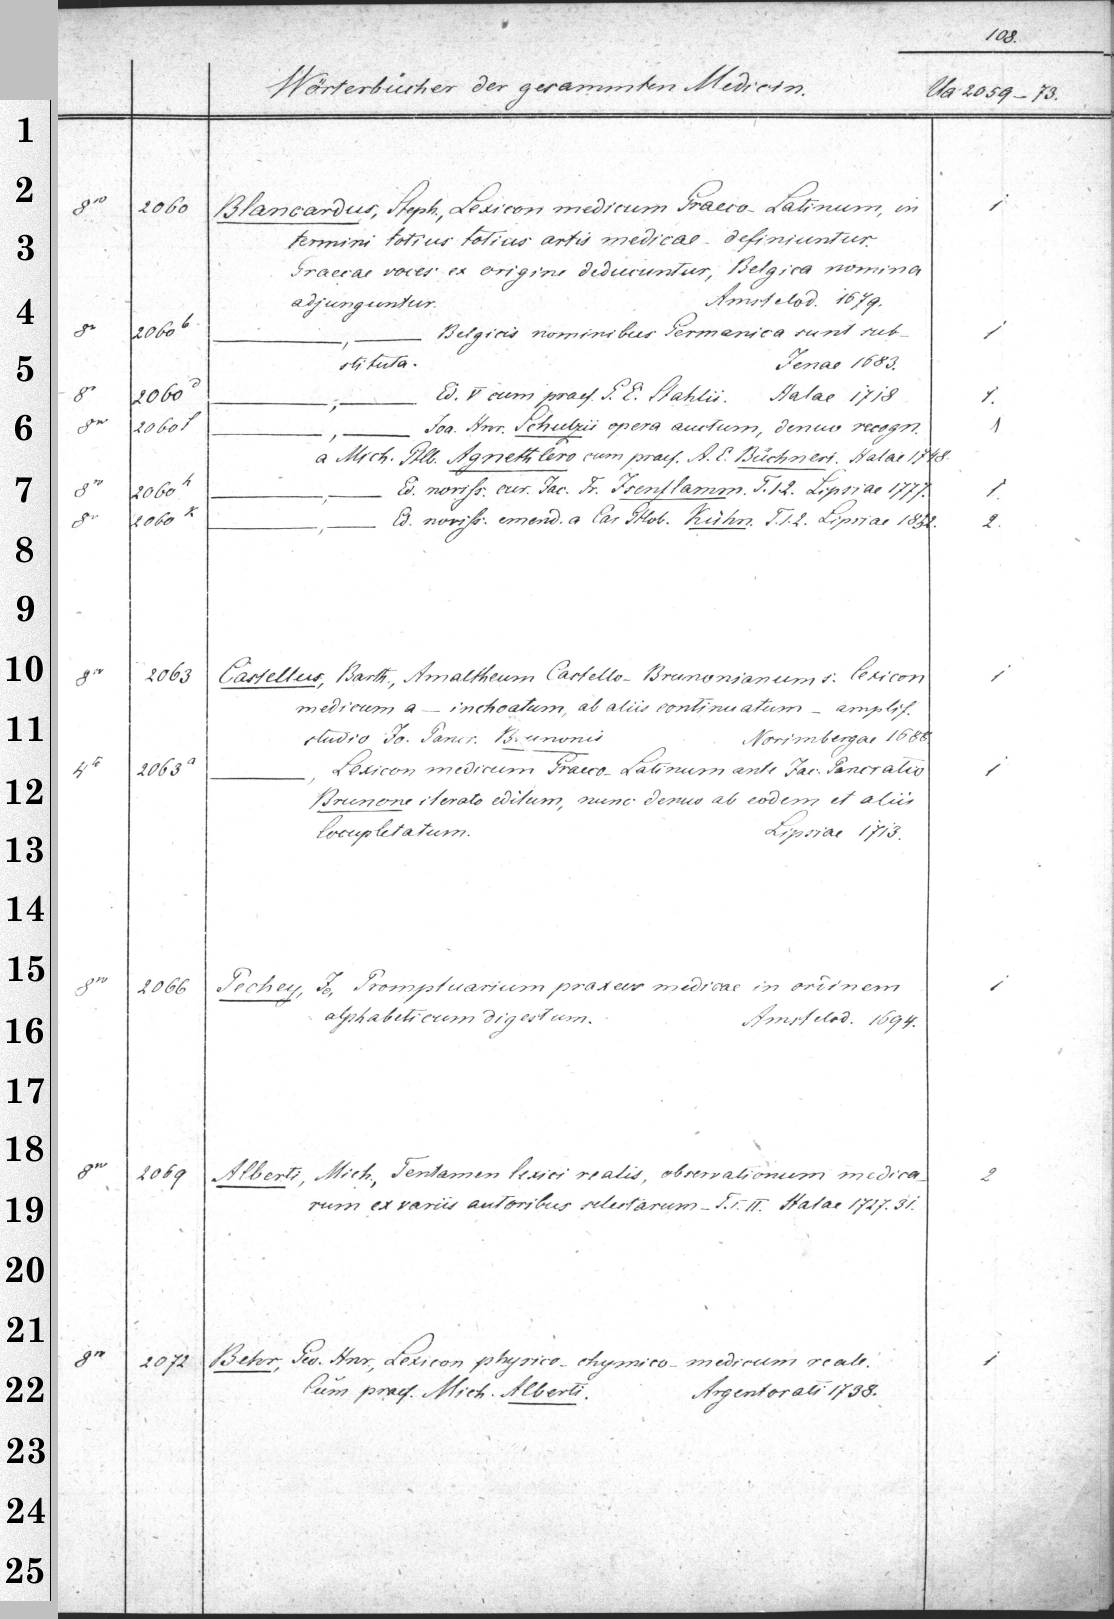 108.
Wörterbücher der gesammten Medicin. Ua 2059-73.
1
2
8vo 2060 Blancardus, Steph., Lexicon medicum Graeco-Latinum, in 1
3
termini totius totius artis medicae - definiuntur.
Graecae voces ex origine deducuntur, Belgica nomina
4
adjunguntur. Amstelod. 1679.
8o 2060b ———, ——— Belgicis nominibus Germanica sunt sub- 1
5
stituta. Jenae 1683.
8o 2060d ———, ——— Ed. V cum praef. G. E. Stahlii. Halae 1718 1.
6
8vo 2060f ———, ——— Joa. Hnr. Schulzii opera auctum, denuo recogn. 1
a Mich. Gtlb. Agnethlero cum praef. A. E. Büchneri. Halae 1748.
7
8vo 2060h ———, ——— Ed. noviss. cur. Jac. Fr. Isenflamm. T.1.2. Lipsiae 1777. 1.
8o 2060k ———, ——— Ed. noviss. emend. a Car Gtlob. Kühn. T.1.2. Lipsiae 1832. 2.
8
9
10
8vo 2063 Castellus, Barth., Amaltheum Castello-Brunonianum s. lexicon 1
medicum a — inchoatum, ab aliis continuatum - amplif.
11
studio Jo. Pancr. Brunonis Norimbergae 1688
4to 2063a ———, Lexicon medicum Graeco-Latinum ante Jac. Pancratio 1
12
Brunone iterato editum, nunc denuo ab eodem et aliis
13
locupletatum. Lipsiae 1713.
14
15
8vo 2066 Pechey, Jo, Promptuarium praxeos medicae in ordinem 1
16
alphabeticum digestum. Amstelod. 1694.
17
18
8vo 2069 Alberti, Mich., Tentamen lexici realis, observationum medica- 2
19
rum ex variis autoribus selectarum - T. I. II. Halae 1727.31.
20
21
8vo 2072 Behr, Geo. Hnr., Lexicon physico-chymico-medicum reale. 1
22
Cum praef. Mich. Alberti. Argentorati 1738.
23
24
25